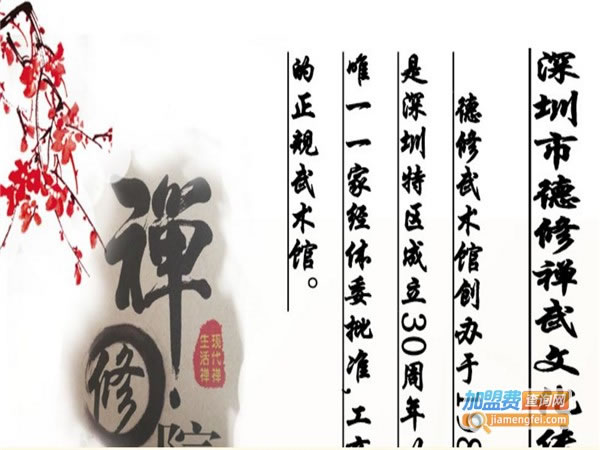 深圳市德修禅武文化
德修武术馆创办于
是深圳特区成立30周年
唯一一家经体委批准,工
的正规武术馆。
禅
修
·
院
现代禅
生活禅
加盟费查询网
jiamengfei.com